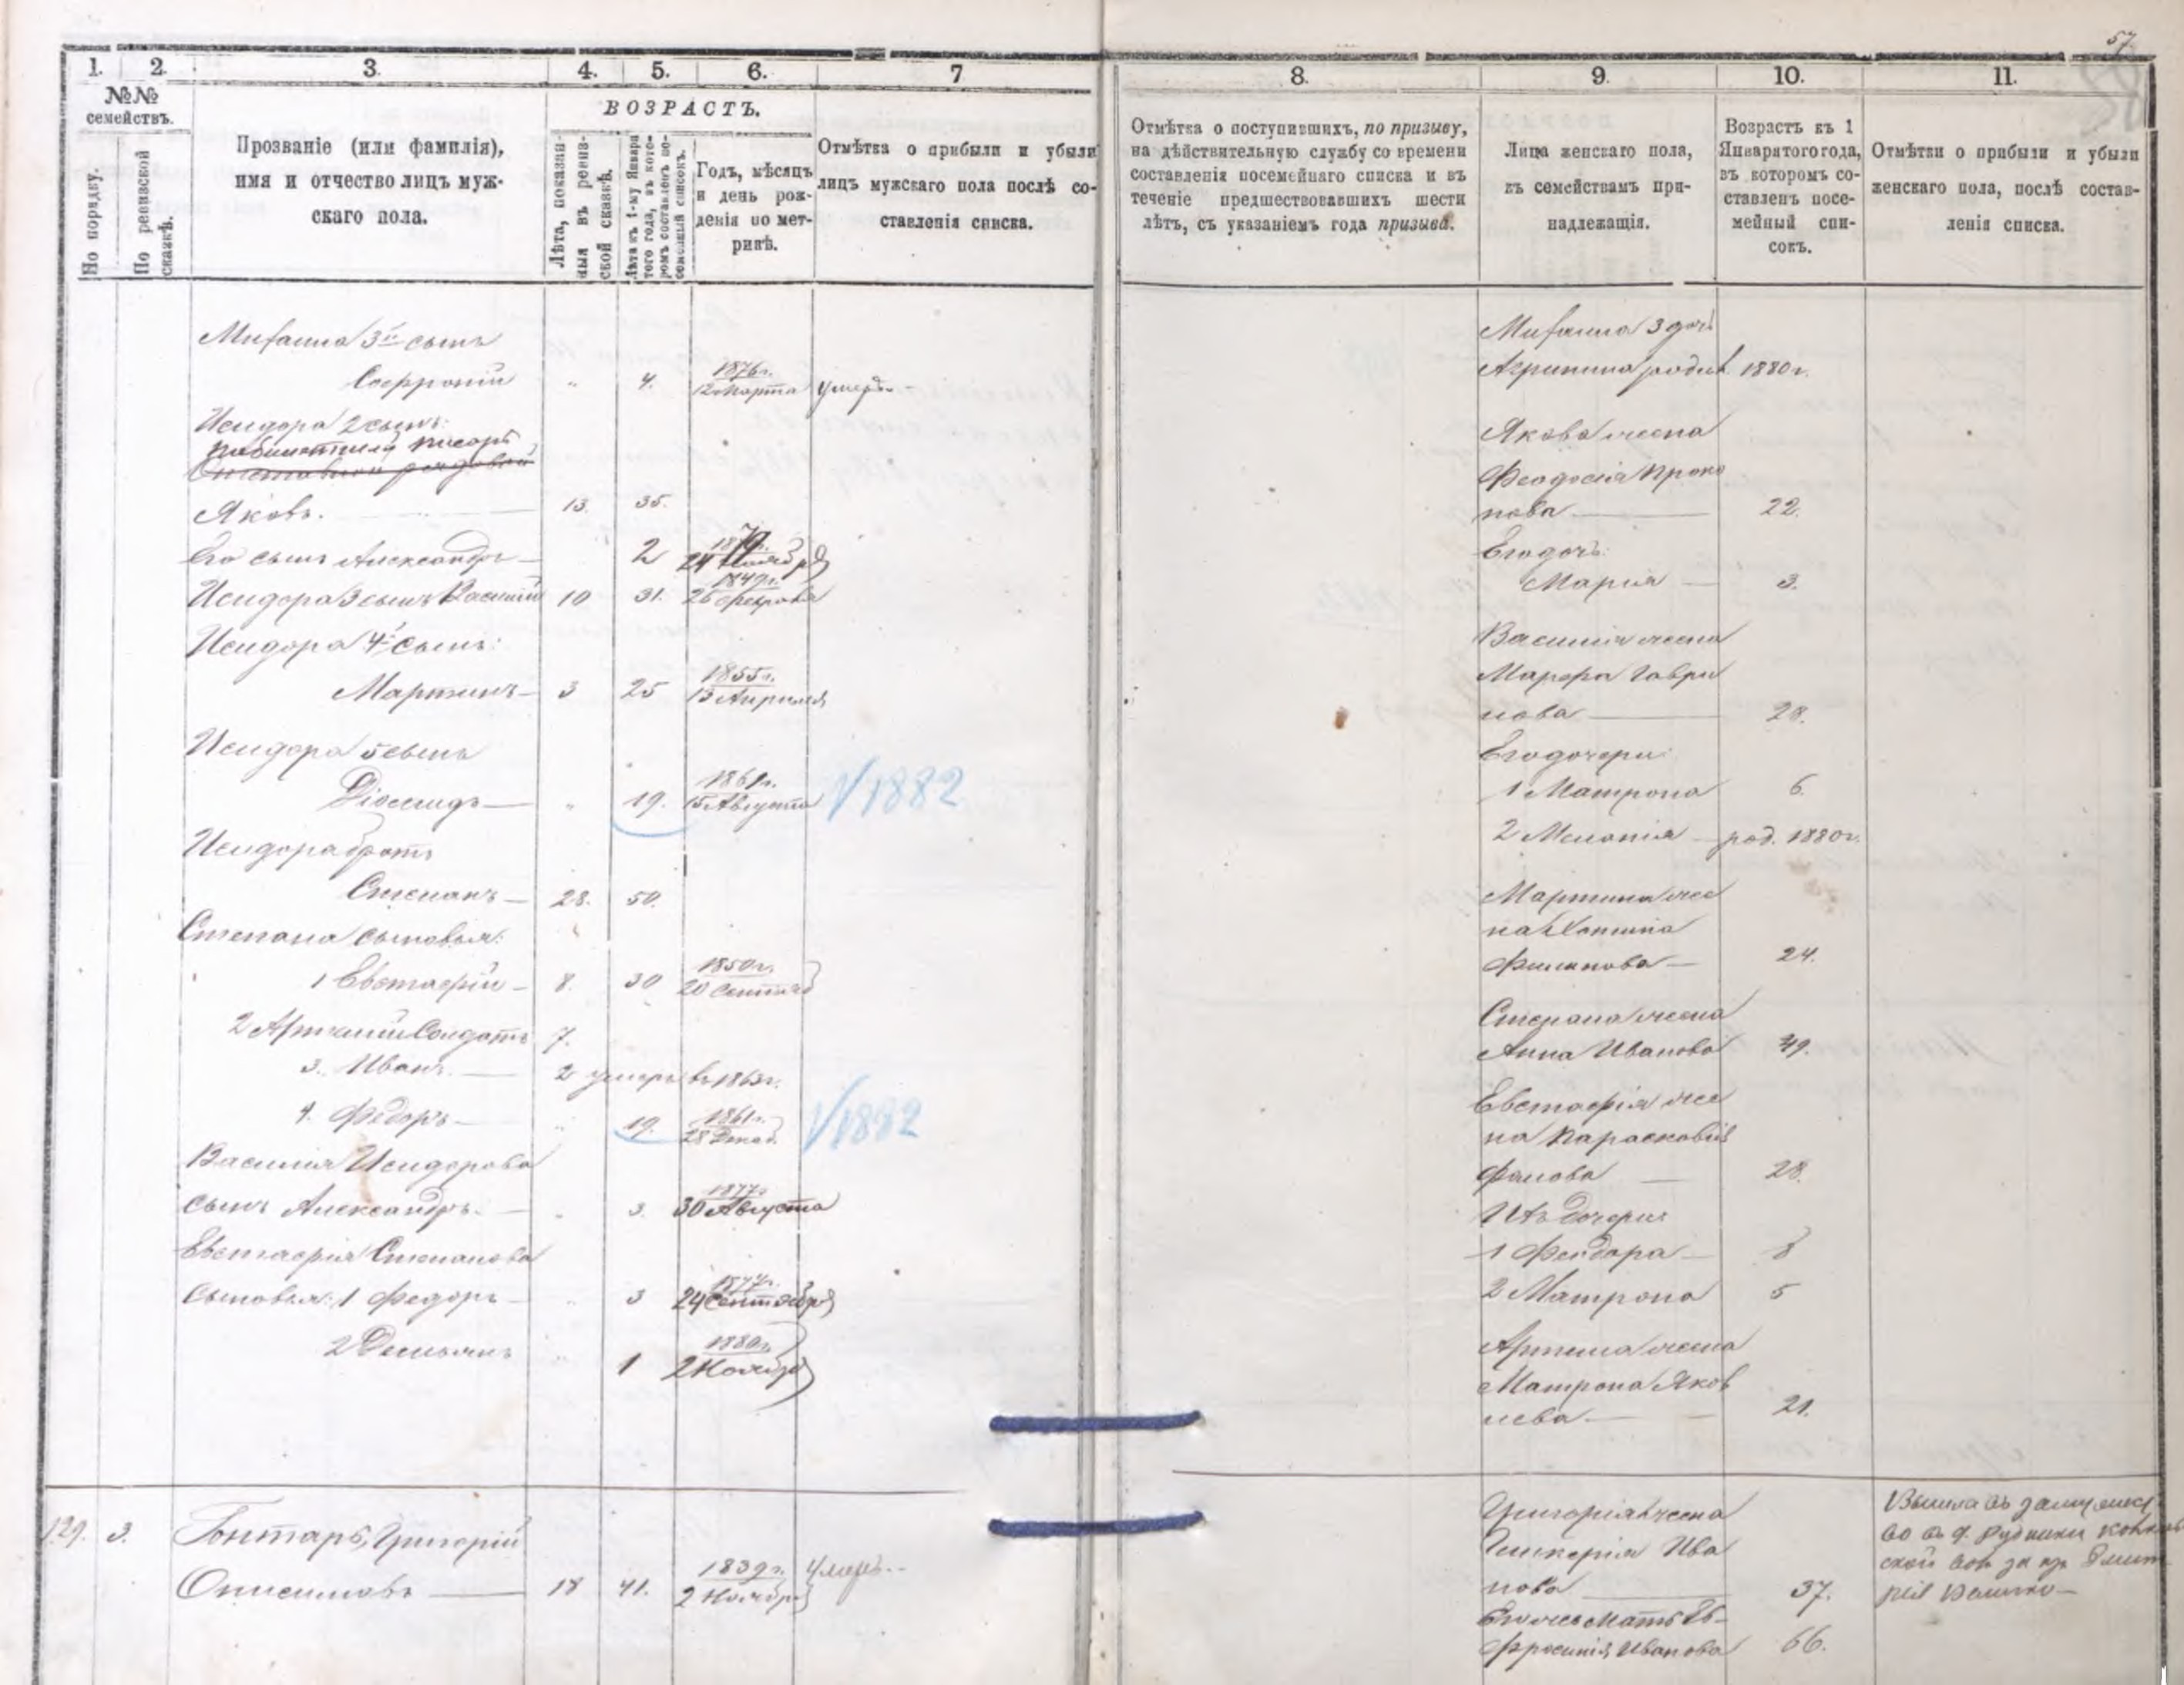 57
1. 2. 3. 4. 5. 6. 7
№№ семействъ.
По порядку.
По ревизской сказкѣ.
Прозваніе (или фамилія),
имя и отчество лицъ муж-
скаго пола.
ВОЗРАСТЪ.
Лѣта, показан-
ныя въ ревиз-
ской сказкѣ.
Лѣта къ 1-му Января
того года, въ кото-
ромъ составленъ по-
семейный списокъ.
Годъ, мѣсяцъ
и день рож-
денія по мет-
рикѣ.
Отмѣтка о прибыли и убыли
лицъ мужскаго пола послѣ со-
ставленія списка.
Михаила 3й сынъ
Софроній " 4. 1876г. 12 Марта умеръ.
Исидора 2 сынъ:
писарь
Яковъ. 13. 35.
Его сынъ Александръ 2 1879г. 24 Ноября
Исидора 3 сынъ Василій 10 31. 1849г. 26 Февраля
Исидора 4й сынъ:
Мартинъ 3 25 1855г. 13 Апреля
Исидора 5 сынъ
Діомидъ " 19. 1861г. 15 Августа 1/1882
Исидора братъ
Степанъ 28. 50.
Степана сыновья:
1 Евстафій 8. 30 1850г. 20 Сентяб
2 Артемій Солдатъ 7.
3. Иванъ. 2 умеръ въ 1863г.
4. Федоръ " 19. 1861г. 28 Декаб. 1/1882
Василія Исидорова
сынъ Александръ. " 3. 1877г. 30 Августа
Евстафія Степанова
сыновья: 1 Федоръ " 3 1877г. 24 Сентября
2 Демьянъ " 1 1880г. 2 Ноября
129. 3. Гонтарь, Григорій
Онисимовъ 18 41. 1839г. 2 Ноября Умеръ.
8. 9. 10. 11.
Отмѣтка о поступившихъ, по призыву,
на дѣйствительную службу со времени
составленія посемейнаго списка и въ
теченіе предшествовавшихъ шести
лѣтъ, съ указаніемъ года призыва.
Лица женскаго пола,
къ семействамъ при-
надлежащія.
Возрастъ къ 1
Января того года,
въ которомъ со-
ставленъ посе-
мейный спи-
сокъ.
Отмѣтки о прибыли и убыли
женскаго пола, послѣ состав-
ленія списка.
Михаила 3 дочь
Агрипина родил. 1880г.
Якова жена
Феодосія Проко
пова 22.
Его дочь:
Марія 3.
Василія жена
Марфа Гаври
лова 28.
Его дочери:
1 Матрона 6.
2 Меланія род. 1880г.
Мартина же
на
Филипова 24.
Степана жена
Анна Иванова 49.
Евстафія же
на Парасковія
28.
Ихъ дочери
1 Феодора 8
2 Матрона 5
Артема жена
Матрона Яков
лева. 21.
Григорія жена
Гликерія Ива
нова 37.
Его же мать Ев-
фросинія Иванова 66.
Вышла въ замужес
во въ д. Рудники
ской вол. за кр. Дмит
рія